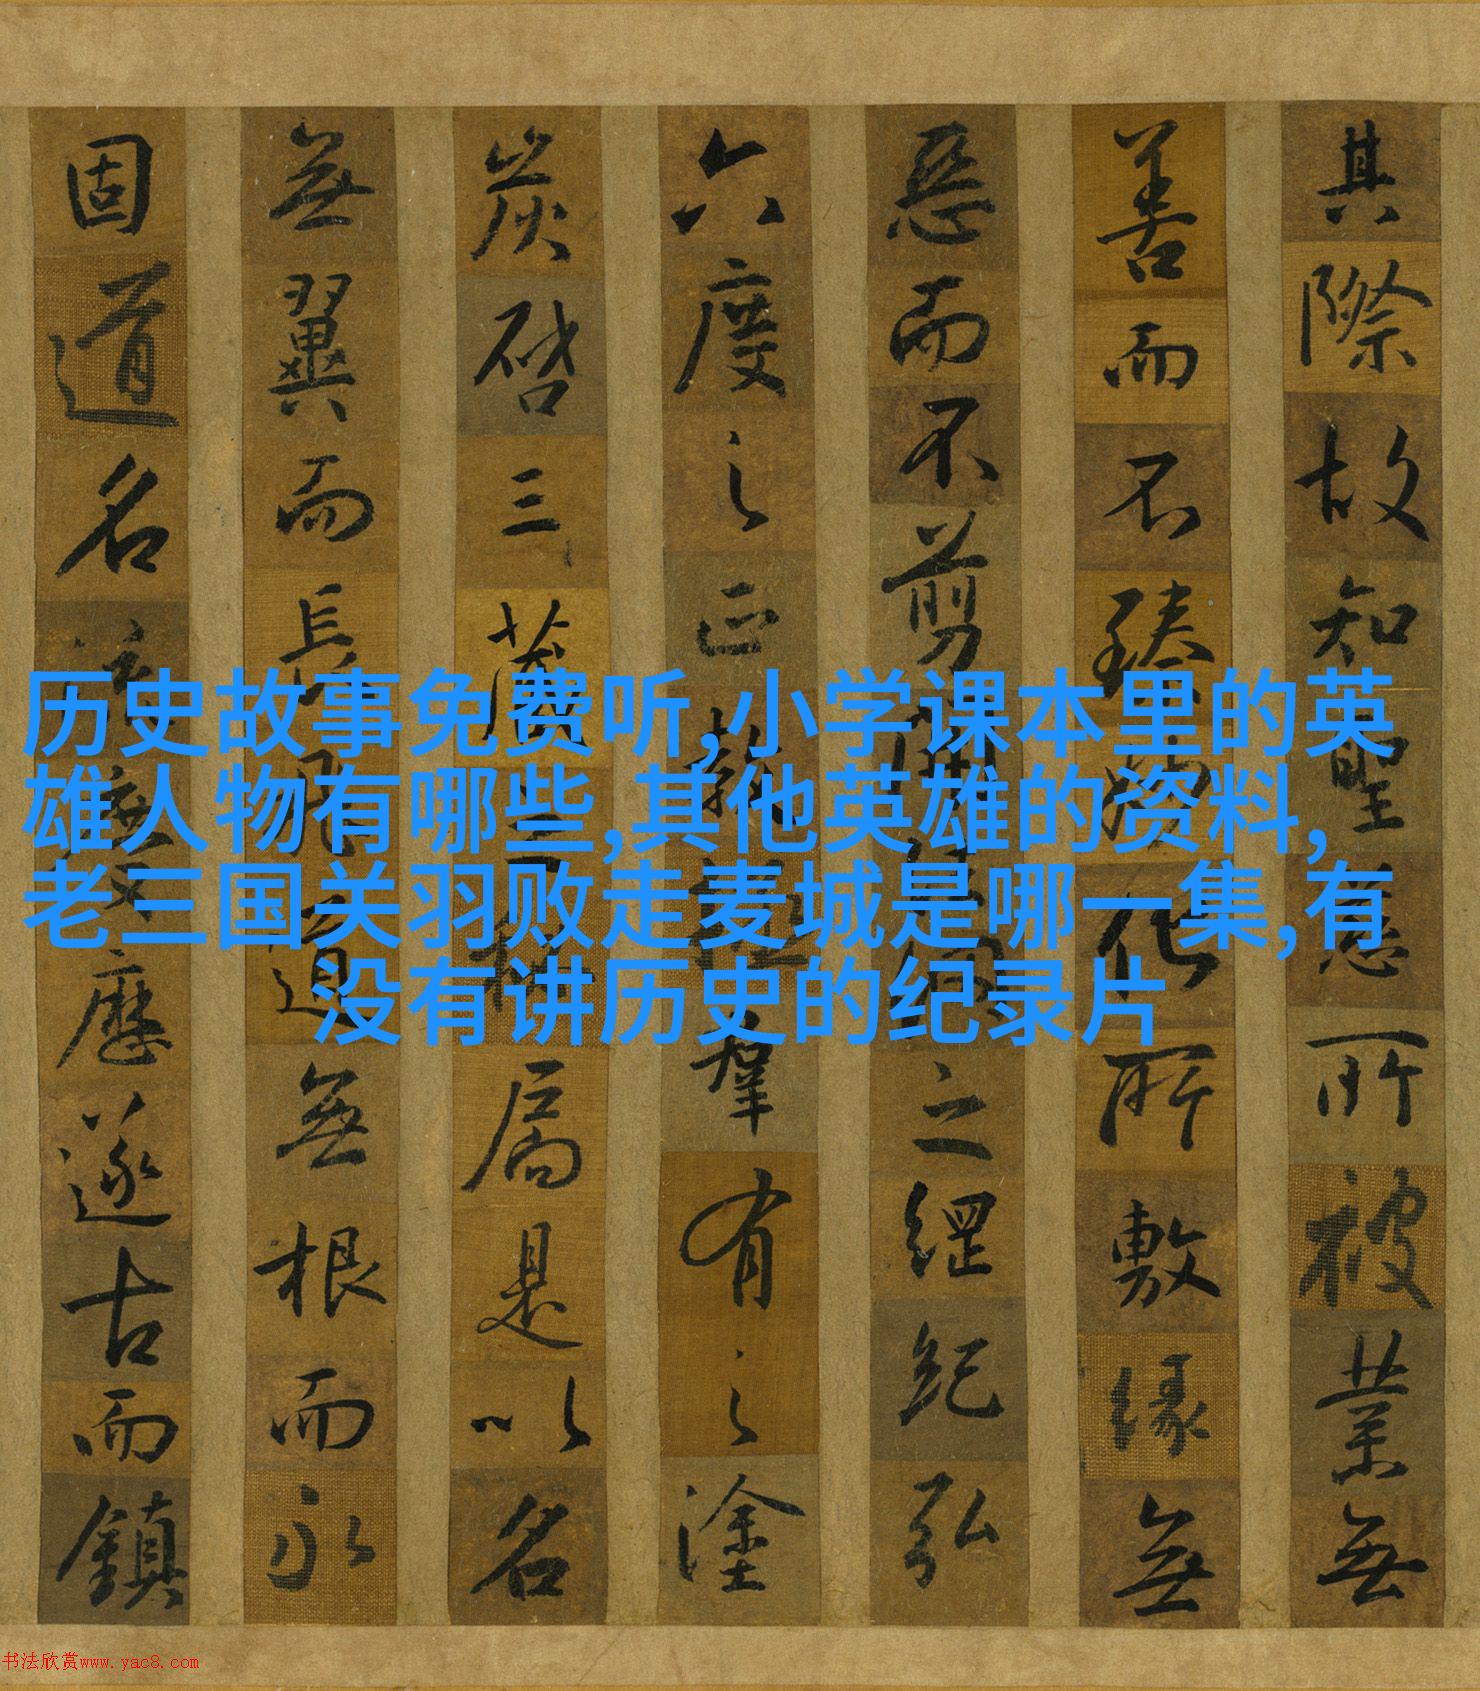 其際故知聖慈所被業無
善而不臻妙化所敷緣無
惡而不剪開法網之綱紀弘
六度之正教拯羣有之塗
炭啓三藏之秘扃是以名
無翼而長飛道無根而永
固道名流慶歷遂古而鎮
历史故事免费听,小学课本里的英
雄人物有哪些,其他英雄的资料,
老三国关羽败走麦城是哪一集,有
没有讲历史的纪录片
书法欣赏www.yac8.com